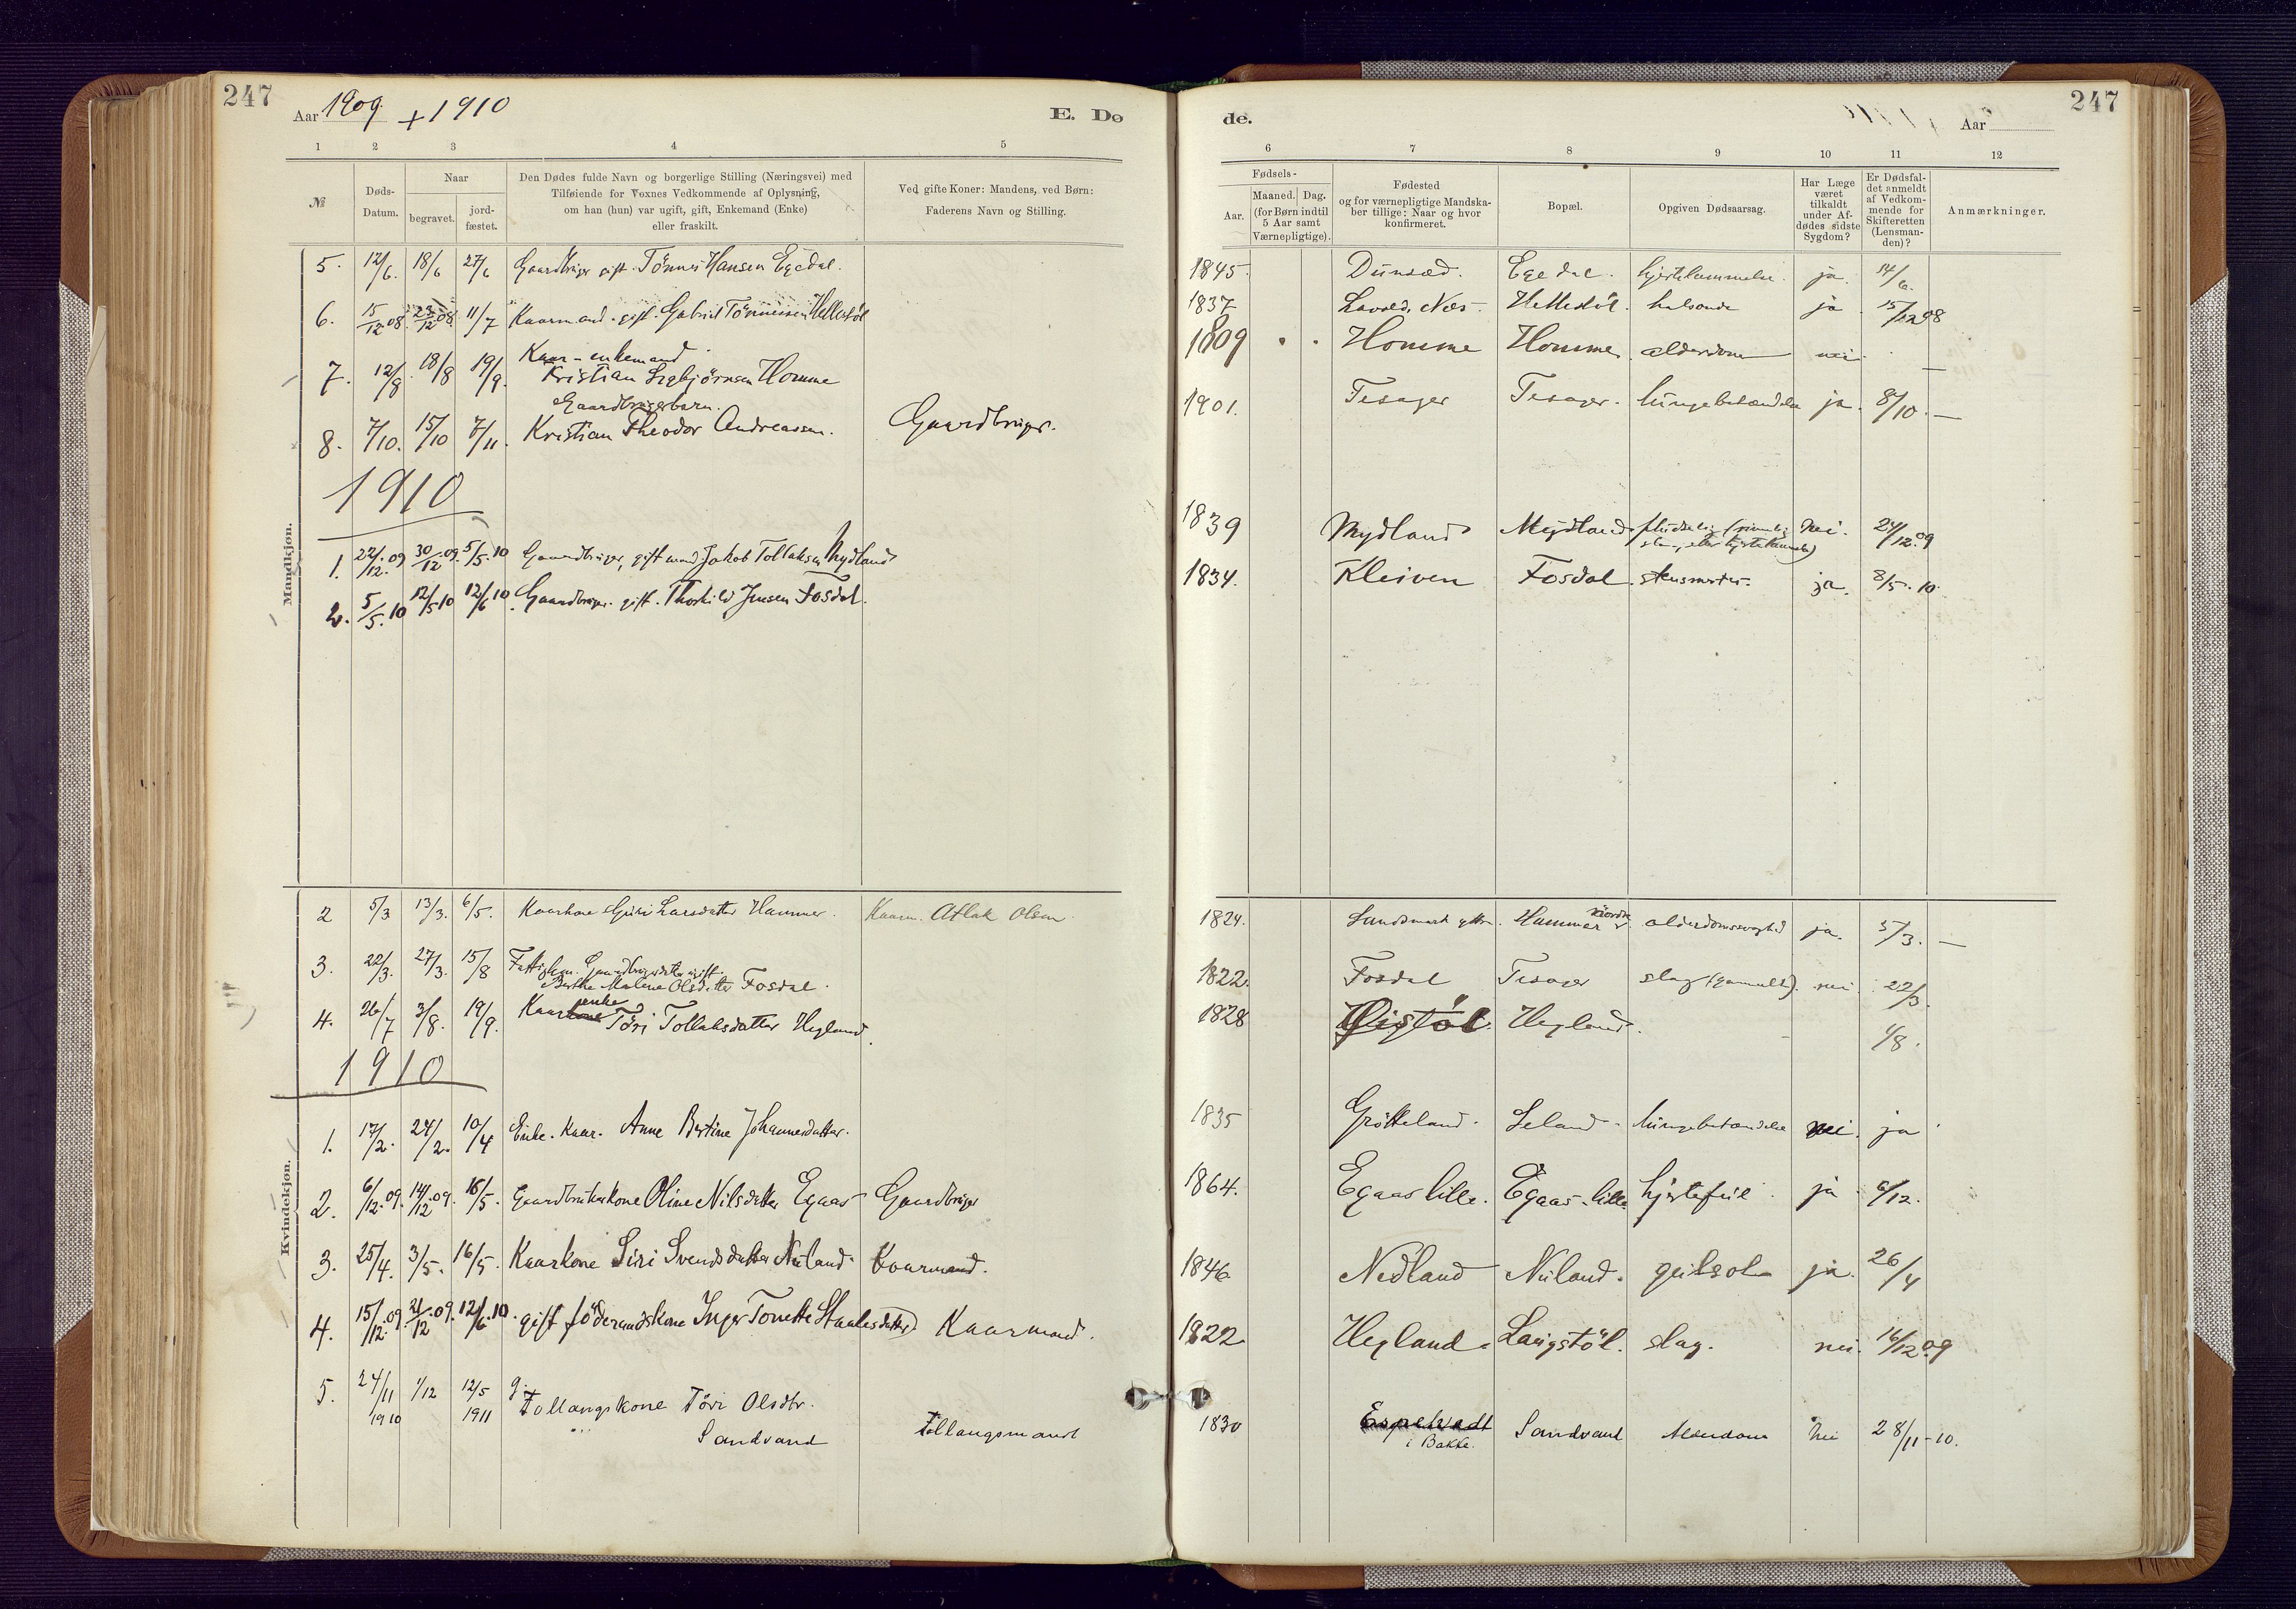 247
Aar 1909 + 1910
E. Dø
de.
Aar
247
1 2 3 4 5
6 7 8 9 10 11 12
№
Døds-
Datum.
Naar
begravet.
jord-
fæstet.
Den Dødes fulde Navn og borgerlige Stilling (Næringsvei) med
Tilføiende for Voxnes Vedkommende af Oplysning,
om han (hun) var ugift, gift, Enkemand (Enke)
eller fraskilt.
Ved gifte Koner: Mandens, ved Børn:
Faderens Navn og Stilling.
Fødsels-
Aar.
Maaned. Dag.
(for Børn indtil
5 Aar samt
Værnepligtige).
Fødested
og for værnepligtige Mandska-
ber tillige: Naar og hvor
konfirmeret.
Bopæl.
Opgiven Dødsaarsag.
Har Læge
været
tilkaldt
under Af-
dødes sidste
Sygdom?
Er Dødsfal-
det anmeldt
af Vedkom-
mende for
Skifteretten
(Lensman-
den)?
Anmærkninger.
Mandkjøn.
5. 12/6. 18/6 27/6 Gaardbruger gift. Tönnes Hansen Egedal. 1845. Egedal. hjertelammelse. ja. 14/6.
6. 15/12 08. 23/12 08. 11/7 Kaarmand. gift. Gabriel Tönnessen Hellestöl 1837 Næs. Hellestöl. ja 15/12 08
7. 12/8. 18/8 19/9. Kaar-enkemand
Kristian Homme 1809 Homme Homme alderdom nei —
8. 7/10. 15/10 7/11. Gaardbrugerbarn.
Kristian Theodor Andreassen. Gaardbruger. 1901. Tesager Tesager. lungebetændelse ja. 8/10. —
1910
1. 22/12.09 30/12.09. 5/5.10 Gaardbruger, gift mand Jakob Tollaksen Mydland 1839 Mydland Mydland nei. 24/12.09
2. 5/5.10 12/5 10 12/6 10. Gaardbruger. gift. Thorkild Jensen Fosdal. 1834. Kleiven Fosdal. ja. 8/5.10.
Kvindekjøn.
2 5/3 13/3. 6/5. Kaarkone Guri Larsdatter Hammer. Kaarm. Atlak Olsen 1824. Hammer nordre alderdomssvaghed ja. 5/3. —
3. 22/3. 27/3. 15/8 Gaardbrugerdatter ugift.
Berthe Malene Olsdatter Fosdal. 1822. Fosdal Tesager slag (gammel). nei 22/3.
4. 26/7 3/8. 19/9. Kaarenke Töri Tollaksdatter Hegland. 1828 Hegland. 1/8.
1910
1. 17/2. 24/2. 10/4 Enke. Kaar. Anne Bertine Johannesdatter. 1835 Grötteland. Leland. lungebetændelse nei. ja
2. 6/12.09. 14/12.09. 16/5. Gaardbrukerkone Oline Nilsdatter Egaas Gaardbruger 1864. Egaas lille. Egaas-lille hjertefeil. ja. 6/12.
3. 25/4. 3/5. 16/5. Kaarkone Siri Svendsdatter Nuland. Kaarmand. 1846 Nedland Nuland. gulsot ja. 26/4
4. 15/12.09. 21/12.09. 12/6.10. gift föderaadskone Inger Tonette Staalesdatter Kaarmand. 1822 Hegland. Langstöl. slag. nei. 16/12 09
5. 24/11 1910 1/12 12/5 1911 g. Follaugskone Töri Olsdtr.
Sandvand Follaugsmand 1830 i Bakke. Sandvand Alderdom Nei 28/11-10.